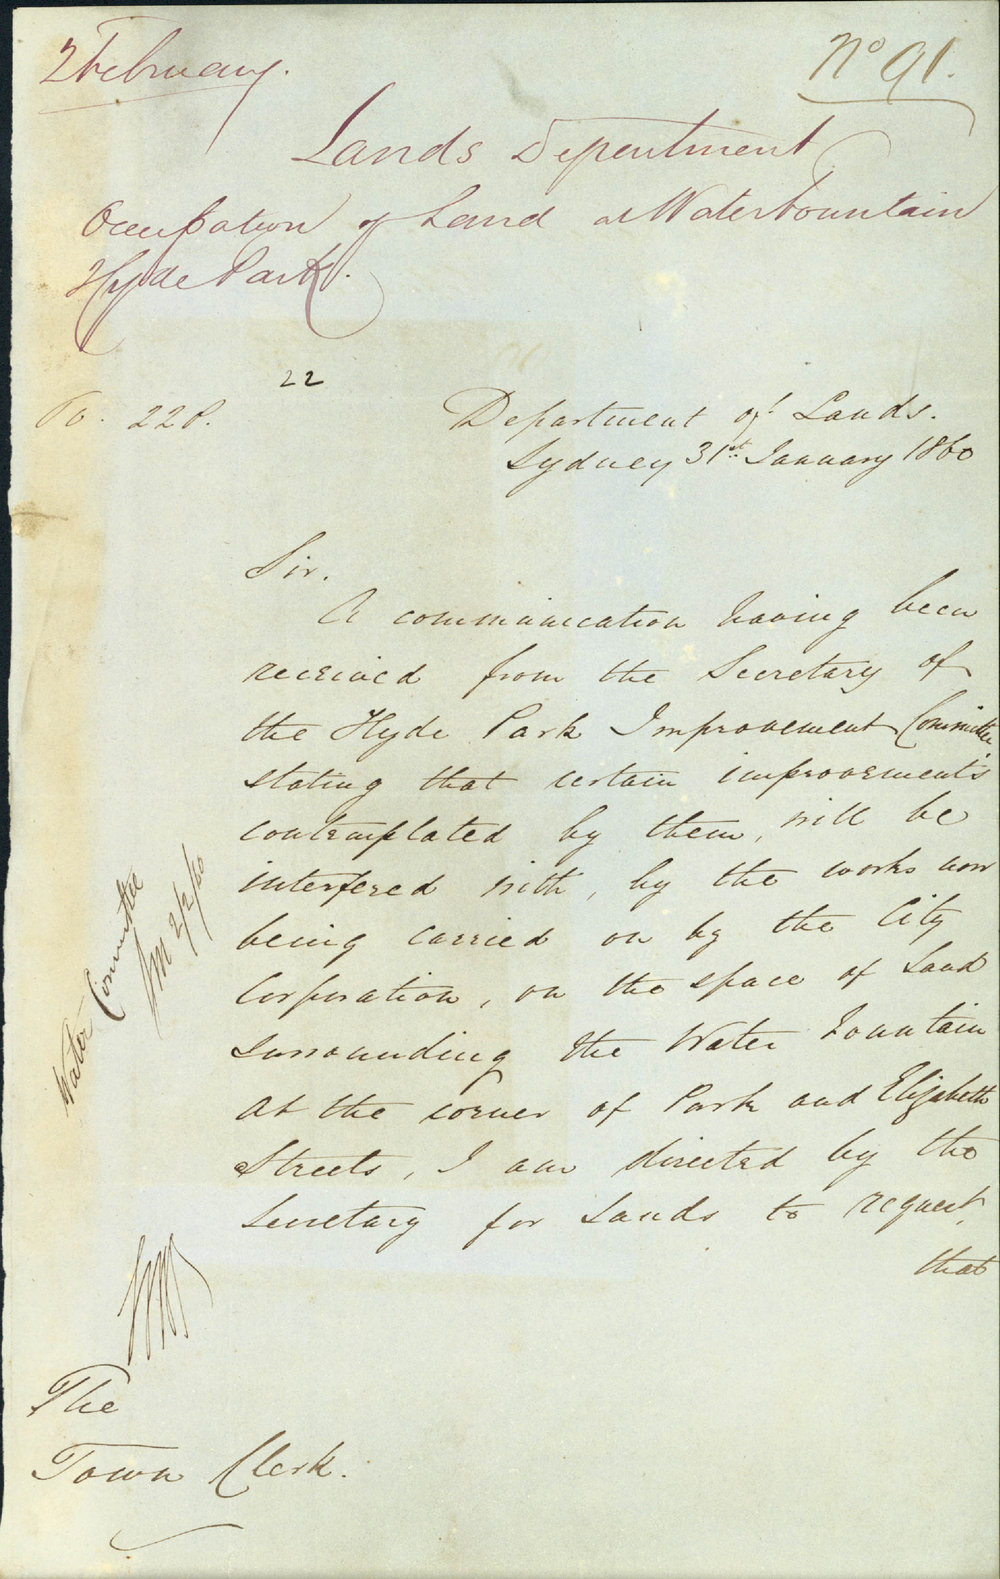 2 February.
No 91.
Lands Department
Occupation of Land at Water Fountain
Hyde Park.
22
To. 22 P.
Department of Lands.
Sydney 31st January 1860
Sir.
A communication having been
received from the Secretary of
the Hyde Park Improvement Committee
stating that certain improvements
contemplated by them, will be
interfered with, by the works now
being carried on by the City
Corporation, on the space of Land
surrounding the Water Fountain
at the corner of Park and Elizabeth
Streets, I am directed by the
Secretary for Lands to request
that
Water Committee
2/2/60
The
Town Clerk.